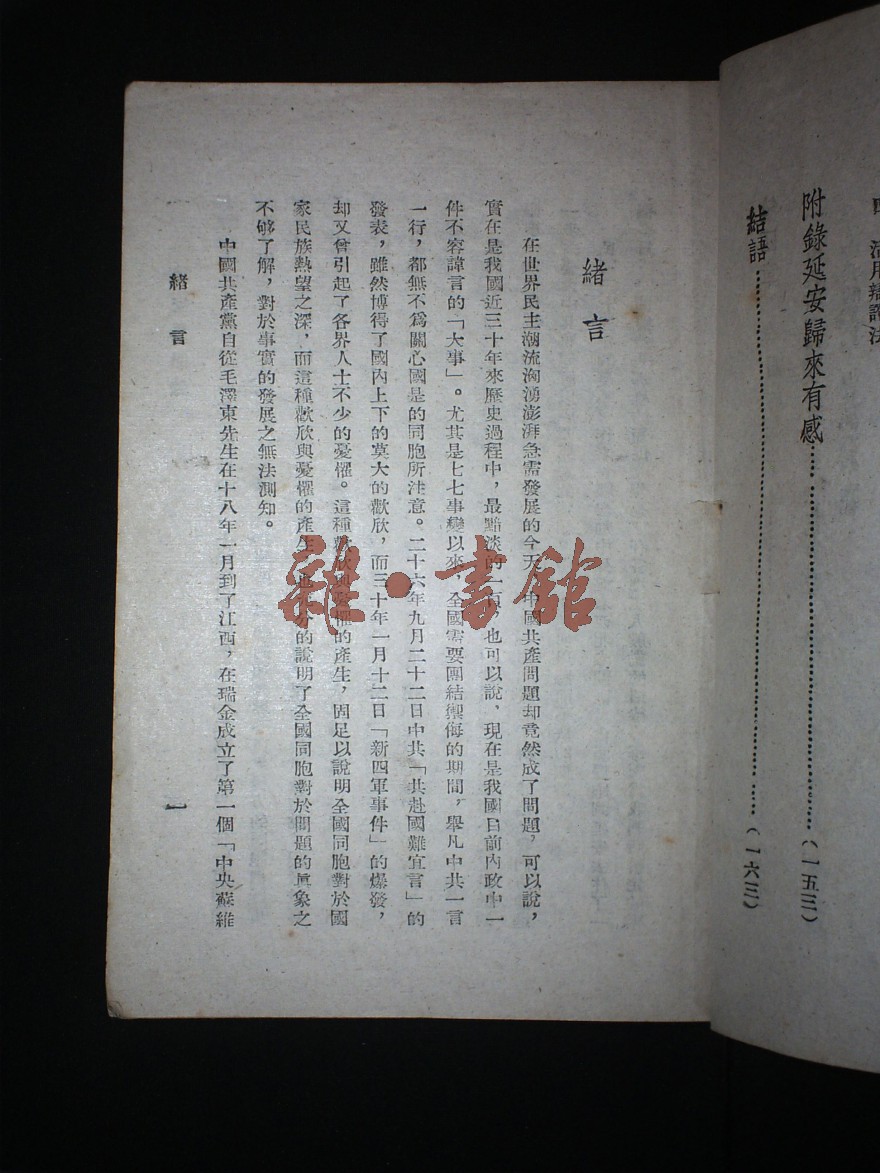 附錄延安歸來有感……(一五三)
結語……(一六三)
緒言
在世界民主潮流洶湧澎湃急需發展的今天,中國共產問題却竟然成了問題,可以說,
實在是我國近三十年來歷史過程中,最黯淡的一頁,也可以說,現在是我國目前內政中一
件不容諱言的「大事」。尤其是七七事變以來,全國需要團結禦侮的期間,舉凡中共一言
一行,都無不爲關心國是的同胞所注意。二十六年九月二十二日中共「共赴國難宣言」的
發表,雖然博得了國內上下的莫大的歡欣,而三十年一月十二日「新四軍事件」的爆發,
却又曾引起了各界人士不少的憂懼。這種歡欣與憂懼的產生,固足以說明全國同胞對於國
家民族熱望之深,而這種歡欣與憂懼的產生,也 分的說明了全國同胞對於問題的眞象之
不够了解,對於事實的發展之無法測知。
中國共產黨自從毛澤東先生在十八年一月到了江西,在瑞金成立了第一個「中央蘇維
緒言
一
雜·書館